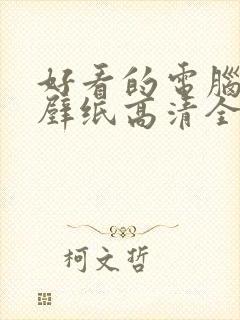 好看的電腦
壁纸高清全
柯文哲